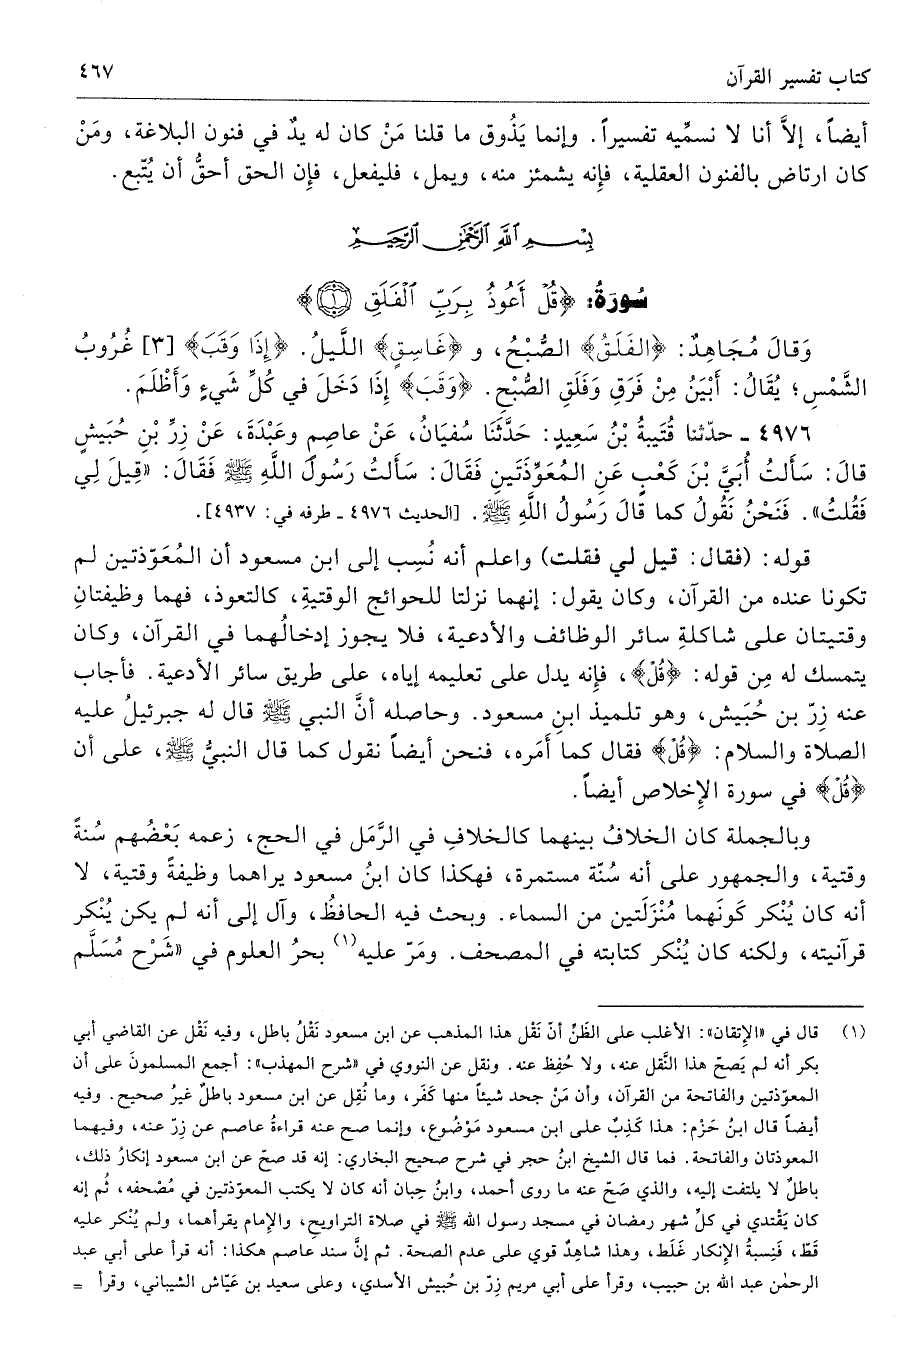 كتاب تفسير القرآن
٤٦٧
أيضاً، إلاَّ أنا لا نسمِّيه تفسيراً. وإنما يَذُوق ما قلنا مَنْ كان له يدٌ في فنون البلاغة، ومَنْ
كان ارتاض بالفنون العقلية، فإنه يشمئز منه، ويمل، فليفعل، فإن الحق أحقُّ أن يُتّبع.
بِسْمِ ٱللَّهِ ٱلرَّحْمَٰنِ ٱلرَّحِيمِ
سُورَةُ: ﴿قُلْ أَعُوذُ بِرَبِّ ٱلْفَلَقِ ۝١﴾
وَقالَ مُجَاهِدٌ: ﴿الفَلَقُ﴾ الصُّبْحُ، و ﴿غَاسِقٍ﴾ اللَّيلُ. ﴿إِذَا وَقَبَ﴾ [٣] غُرُوبُ
الشَّمْسِ؛ يُقَالُ: أَبْيَنُ مِنْ فَرَقِ وَفَلَقِ الصُّبْحِ. ﴿وَقَبَ﴾ إِذَا دَخَلَ في كُلِّ شَيءٍ وَأَظْلَمَ.
٤٩٧٦ ـ حدّثنا قُتَيبَةُ بْنُ سَعِيدٍ: حَدَّثَنَا سُفيَانُ، عَنْ عاصِمٍ وعَبْدَةَ، عَنْ زِرِّ بْنِ حُبَيشٍ
قالَ: سَأَلتُ أُبَيَّ بْنَ كَعْبٍ عَنِ المُعَوِّذَتَينِ فَقَالَ: سَأَلتُ رَسُولَ اللَّهِ ﷺ فَقَالَ: «قِيلَ لِي
فَقُلتُ». فَنَحْنُ نَقُولُ كما قالَ رَسُولُ اللَّهِ ﷺ. [الحديث ٤٩٧٦ ـ طرفه في: ٤٩٣٧].
قوله: (فقال: قيل لي فقلت) واعلم أنه نُسِب إلى ابن مسعود أن المُعَوّذتين لم
تكونا عنده من القرآن، وكان يقول: إنهما نزلتا للحوائج الوقتيةِ، كالتعوذ، فهما وظيفتانِ
وقتيتان على شاكلةِ سائر الوظائف والأدعية، فلا يجوز إدخالُهما في القرآن، وكان
يتمسك له مِن قوله: ﴿قُلْ﴾، فإنه يدل على تعليمه إياه، على طريق سائر الأدعية. فأجاب
عنه زِرّ بن حُبَيش، وهو تلميذ ابنِ مسعود. وحاصله أنَّ النبي ﷺ قال له جبرئيلُ عليه
الصلاة والسلام: ﴿قُلْ﴾ فقال كما أَمَره، فنحن أيضاً نقول كما قال النبيُّ ﷺ، على أن
﴿قُلْ﴾ في سورة الإِخلاص أيضاً.
وبالجملة كان الخلافُ بينهما كالخلافِ في الرَّمَل في الحج، زعمه بَعْضُهم سُنةً
وقتية، والجمهور على أنه سُنّة مستمرة، فهكذا كان ابنُ مسعود يراهما وظيفةً وقتية، لا
أنه كان يُنْكر كونَهما مُنْزَلَتين من السماء. وبحث فيه الحافظُ، وآل إلى أنه لم يكن يُنْكر
قرآنيته، ولكنه كان يُنْكر كتابته في المصحف. ومَرّ عليه(١) بحرُ العلوم في «شَرْح مُسَلَّم
(١) قال في «الإتقان»: الأغلب على الظَنُ أنّ نَقْل هذا المذهب عن ابن مسعود نَقْلُ باطل، وفيه نَقْل عن القاضي أبي
بكر أنه لم يَصحّ هذا النَّقل عنه، ولا حُفِظ عنه. ونقل عن النووي في «شرح المهذب»: أجمع المسلمونَ على أن
المعوّذتين والفاتحة من القرآن، وأن مَنْ جحد شيئاً منها كَفَر، وما نُقِل عن ابن مسعود باطلٌ غيرُ صحيح. وفيه
أيضاً قال ابنُ حَزْم: هذا كَذِبٌ على ابن مسعود مَوْضُوع، وإنما صح عنه قراءةُ عاصم عن زِرّ عنه، وفيهما
المعوذتان والفاتحة. فما قال الشيخ ابنُ حجر في شرح صحيح البخاري: إنه قد صحّ عن ابن مسعود إنكارُ ذلك،
باطلٌ لا يلتفت إليه، والذي صَحّ عنه ما روى أحمد، وابنُ حِبان أنه كان لا يكتب المعوّذتين في مُصْحفه، ثُم إنه
كان يَقْتدي في كلِّ شهر رمضان في مسجد رسول الله ﷺ في صلاة التراويح، والإمام يقرأهما، ولم يُنْكر عليه
قَطّ، فَنِسبةُ الإنكار غَلَط، وهذا شاهِدٌ قوي على عدم الصحة. ثم إنَّ سند عاصم هكذا: أنه قرأ على أبي عبد
الرحمٰن عبد الله بن حبيب، وقرأ على أبي مريم زِرّ بن حُبيش الأسدي، وعلى سعيد بن عَيّاش الشيباني، وقرأ =